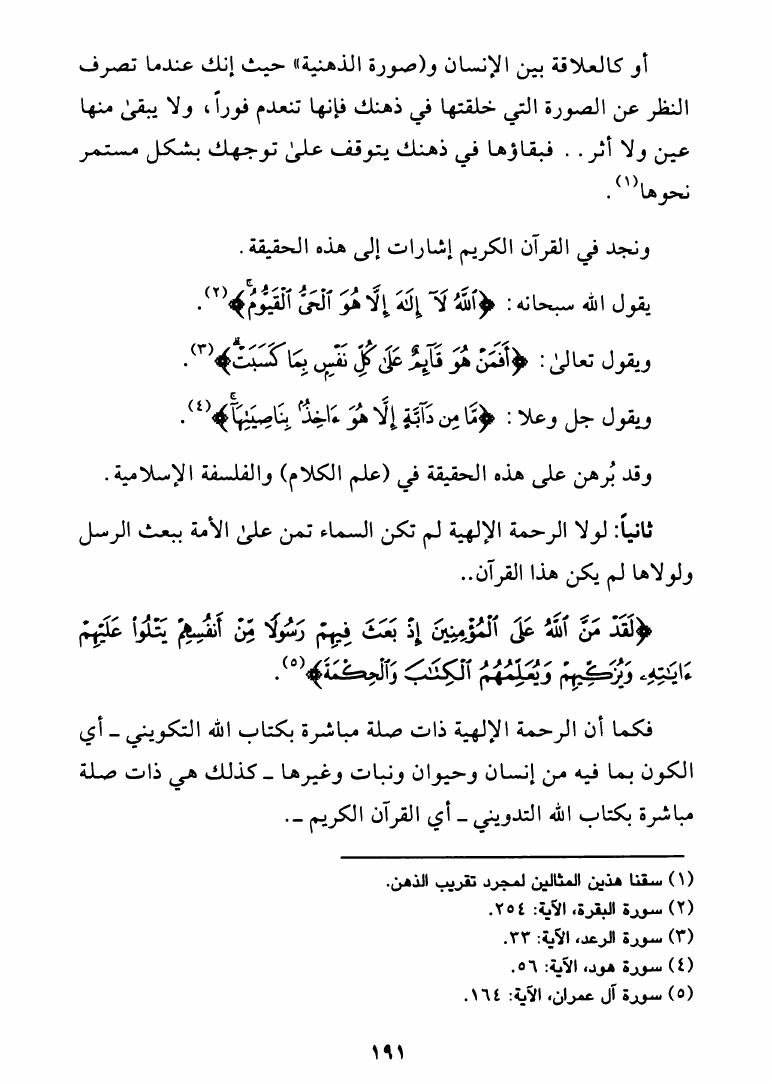 أو كالعلاقة بين الإنسان و(صورة الذهنية» حيث إنك عندما تصرف
النظر عن الصورة التي خلقتها في ذهنك فإنها تنعدم فوراً، ولا يبقىٰ منها
عين ولا أثر.. فبقاؤها في ذهنك يتوقف علىٰ توجهك بشكل مستمر
نحوها(١).
ونجد في القرآن الكريم إشارات إلى هذه الحقيقة.
يقول الله سبحانه: ﴿ٱللَّهُ لَآ إِلَٰهَ إِلَّا هُوَ ٱلْحَىُّ ٱلْقَيُّومُ ۚ﴾(٢).
ويقول تعالىٰ: ﴿أَفَمَنْ هُوَ قَآئِمٌ عَلَىٰ كُلِّ نَفْسٍۭ بِمَا كَسَبَتْ ۗ﴾(٣).
ويقول جل وعلا: ﴿مَّا مِن دَآبَّةٍ إِلَّا هُوَ ءَاخِذٌۢ بِنَاصِيَتِهَآ ۚ﴾(٤).
وقد بُرهن على هذه الحقيقة في (علم الكلام) والفلسفة الإسلامية.
ثانياً: لولا الرحمة الإلهية لم تكن السماء تمن علىٰ الأمة ببعث الرسل
ولولاها لم يكن هذا القرآن..
﴿لَقَدْ مَنَّ ٱللَّهُ عَلَى ٱلْمُؤْمِنِينَ إِذْ بَعَثَ فِيهِمْ رَسُولًا مِّنْ أَنفُسِهِمْ يَتْلُوا۟ عَلَيْهِمْ
ءَايَٰتِهِۦ وَيُزَكِّيهِمْ وَيُعَلِّمُهُمُ ٱلْكِتَٰبَ وَٱلْحِكْمَةَ﴾(٥).
فكما أن الرحمة الإلهية ذات صلة مباشرة بكتاب الله التكويني - أي
الكون بما فيه من إنسان وحيوان ونبات وغيرها - كذلك هي ذات صلة
مباشرة بكتاب الله التدويني - أي القرآن الكريم -.
(١) سقنا هذين المثالين لمجرد تقريب الذهن.
(٢) سورة البقرة، الآية: ٢٥٤.
(٣) سورة الرعد، الآية: ٣٣.
(٤) سورة هود، الآية: ٥٦.
(٥) سورة آل عمران، الآية: ١٦٤.
١٩١